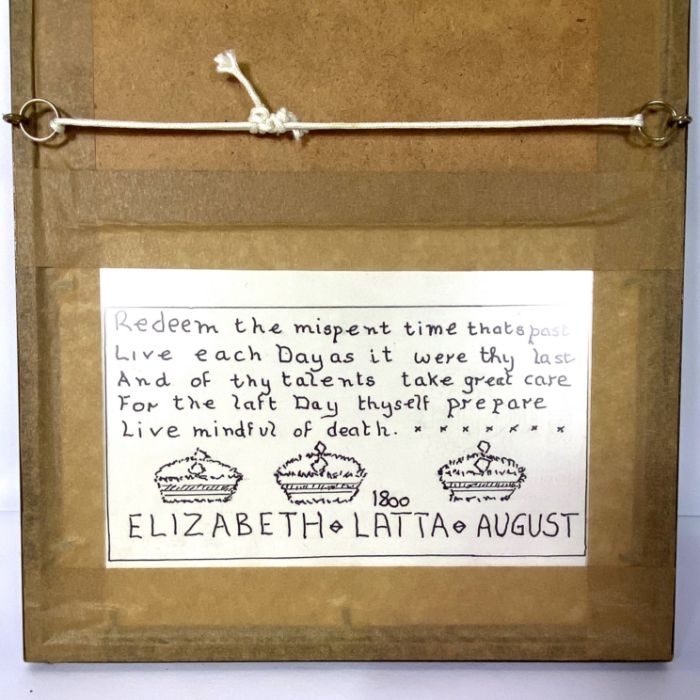 Redeem the mispent time thats past
Live each Day as it were thy last
And of thy talents take great care
For the laſt Day thyself prepare
Live mindful of death. × × × × × × ×
1800
ELIZABETH ⋄ LATTA ⋄ AUGUST